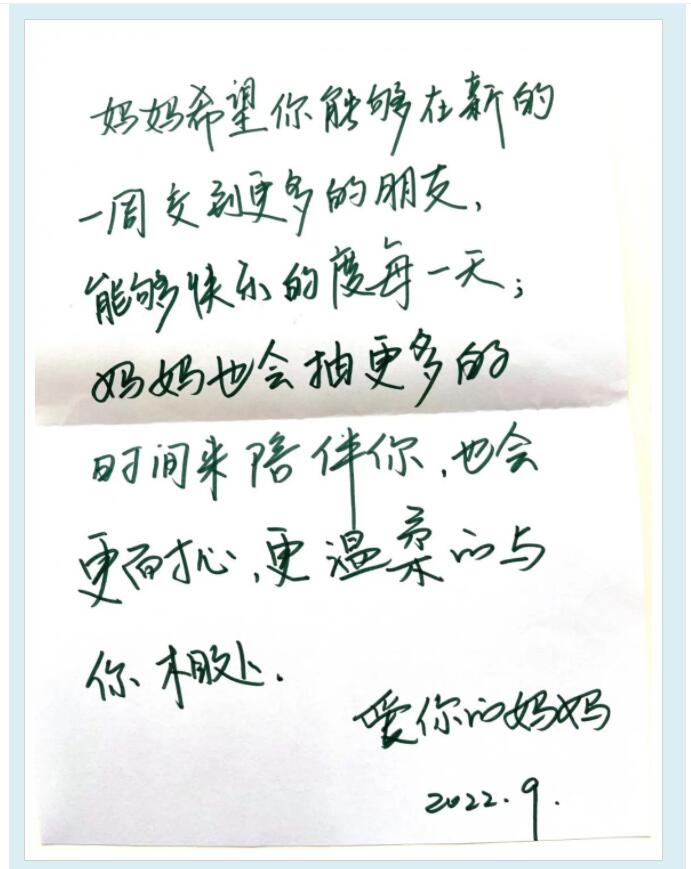 妈妈希望你能够在新的
一周交到更多的朋友,
能够快乐的度每一天;
妈妈也会抽更多的
时间来陪伴你,也会
更耐心,更温柔的与
你相处.
爱你的妈妈
2022.9.